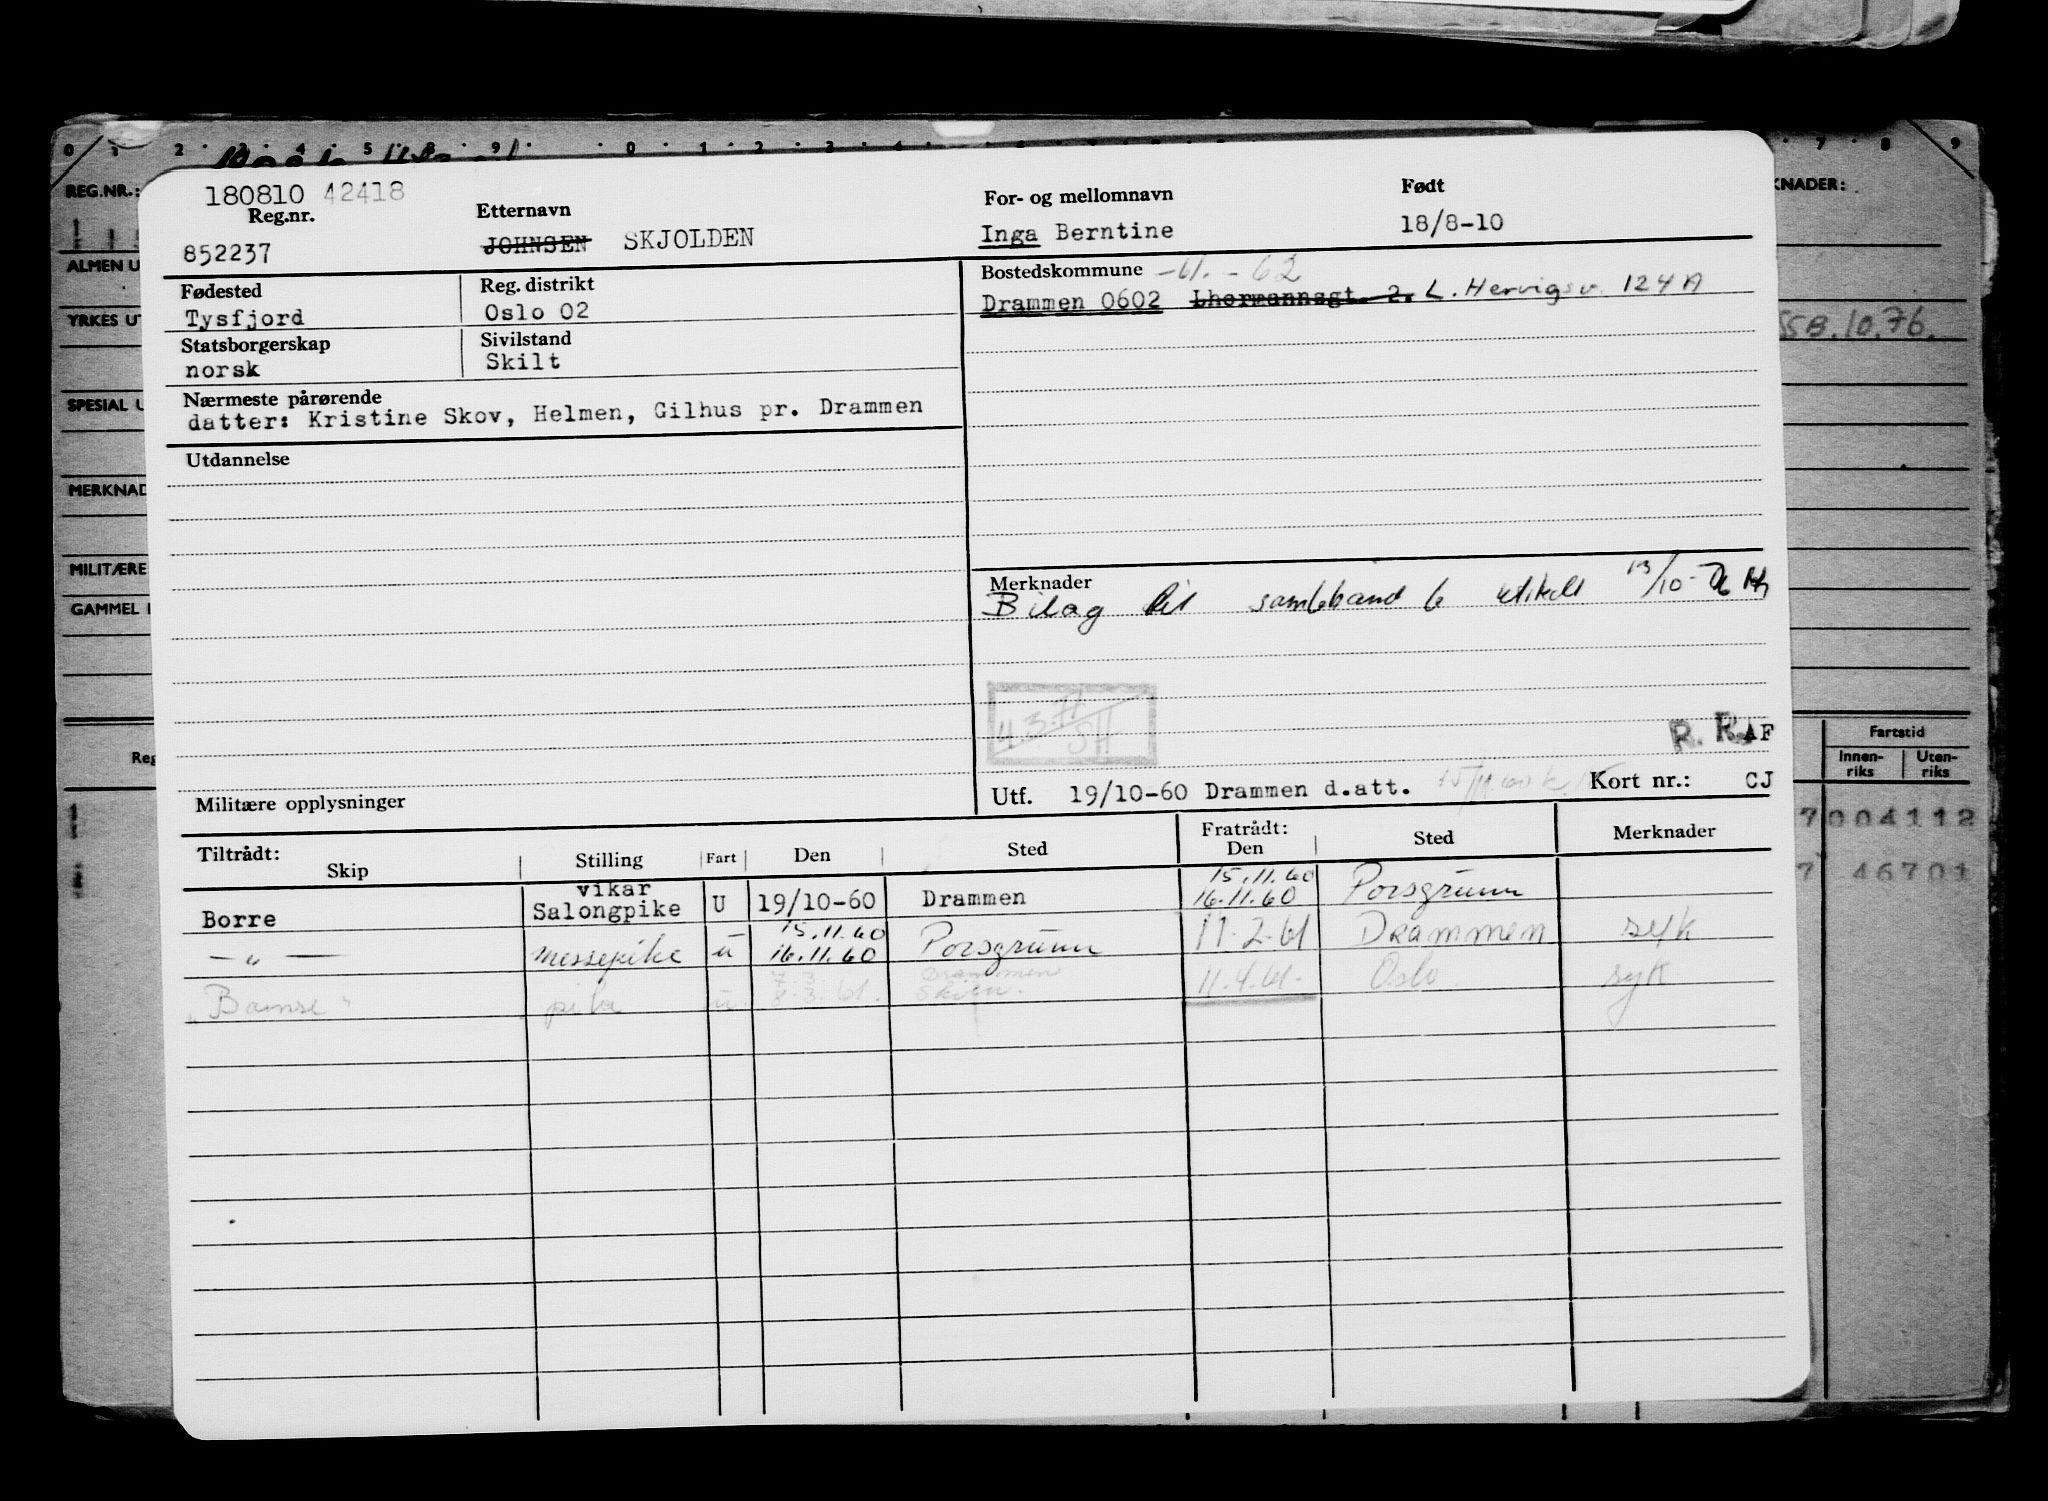 0 1 2 3 4 5 8 9 0 1 2 3 4 7 8 9
REG.NR.:
KNADER:
ALMEN U
YRKES UT
SPESIAL U
MERKNAD
MILITÆRE
GAMMEL
SSB.10.76.
180810 42418
Reg.nr.
852237
Etternavn
JOHNSEN SKJOLDEN
For- og mellomnavn
Inga Berntine
Født
18/8-10
Fødested
Tysfjord
Reg. distrikt
Oslo 02
Bostedskommune -61. - 62
Drammen 0602 Lhermannsgt. 2. L. Hervigsv. 124 A
Statsborgerskap
norsk
Sivilstand
Skilt
Nærmeste pårørende
datter: Kristine Skov, Helmen, Gilhus pr. Drammen
Utdannelse
Merknader
Bilag til samleband 6 13/10-76
4.3.71
SH
R. R. AF
Militære opplysninger
Utf. 19/10-60 Drammen d.att. 15/11.60 Kort nr.: CJ
Reg
Fartstid
Innen-riks Uten-riks
7 004112
7 46701
Tiltrådt: Fratrådt:
Skip Stilling Fart Den Sted Den Sted Merknader
vikar 15.11.60
Borre Salongpike U 19/10-60 Drammen 16.11.60 Porsgrunn
15.11.60
— " — messepike u 16.11.60 Porsgrunn 17-2-61 Drammen syk
7 3 Drammen
"Bamse" pike u. 8.3.61. Skien. 11.4.61. Oslo syk